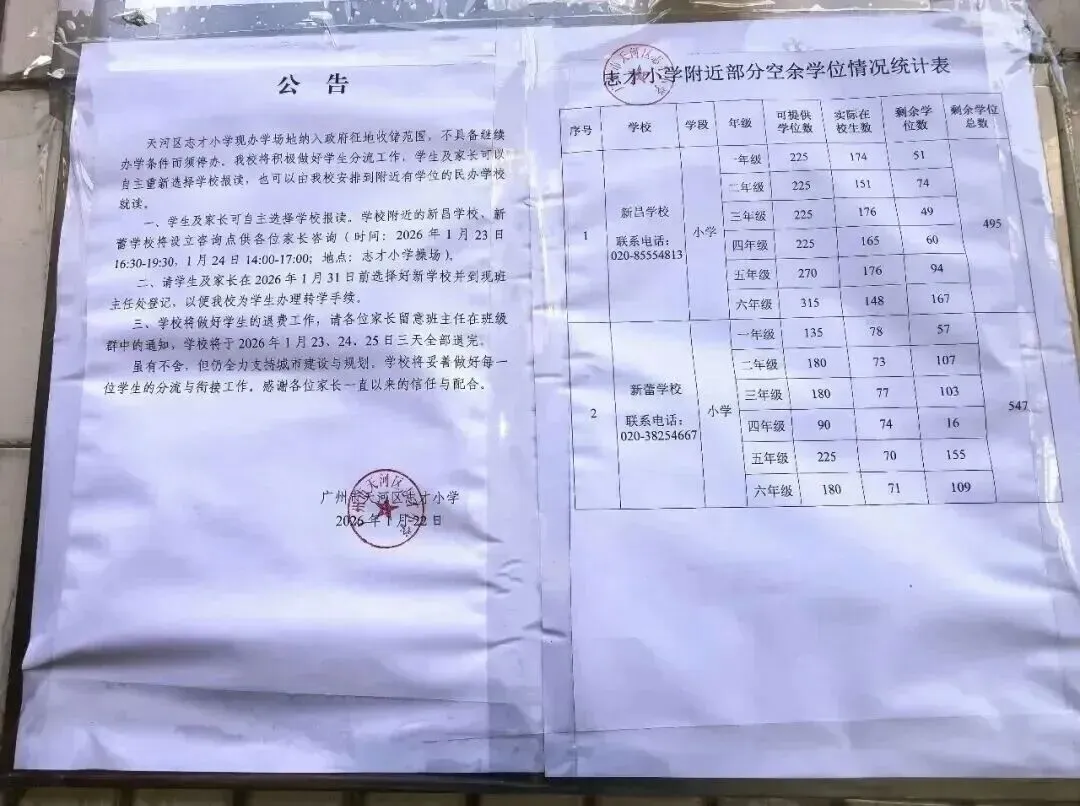 公 告
天河区志才小学现办学场地纳入政府征地收储范围，不具备继续
办学条件而须停办。我校将积极做好学生分流工作，学生及家长可以
自主重新选择学校报读，也可以由我校安排到附近有学位的民办学校
就读。
一、学生及家长可自主选择学校报读。学校附近的新昌学校、新
蕾学校将设立咨询点供各位家长咨询（时间：2026 年 1 月 23 日
16:30-19:30，1 月 24 日 14:00-17:00；地点：志才小学操场）。
二、请学生及家长在 2026 年 1 月 31 日前选择好新学校并到现班
主任处登记，以便我校为学生办理转学手续。
三、学校将做好学生的退费工作，请各位家长留意班主任在班级
群中的通知，学校将于 2026 年 1 月 23、24、25 日三天全部退完。
虽有不舍，但仍全力支持城市建设与规划，学校将妥善做好每一
位学生的分流与衔接工作。感谢各位家长一直以来的信任与配合。
广州市天河区志才小学
2026 年 1 月 22 日
志才小学附近部分空余学位情况统计表
序号 学校 学段 年级 可提供学位数 实际在校生数 剩余学位数 剩余学位总数
1 新昌学校 联系电话：020-85554813 小学 一年级 225 174 51 495
二年级 225 151 74
三年级 225 176 49
四年级 225 165 60
五年级 270 176 94
六年级 315 148 167
2 新蕾学校 联系电话：020-38254667 小学 一年级 135 78 57 547
二年级 180 73 107
三年级 180 77 103
四年级 90 74 16
五年级 225 70 155
六年级 180 71 109